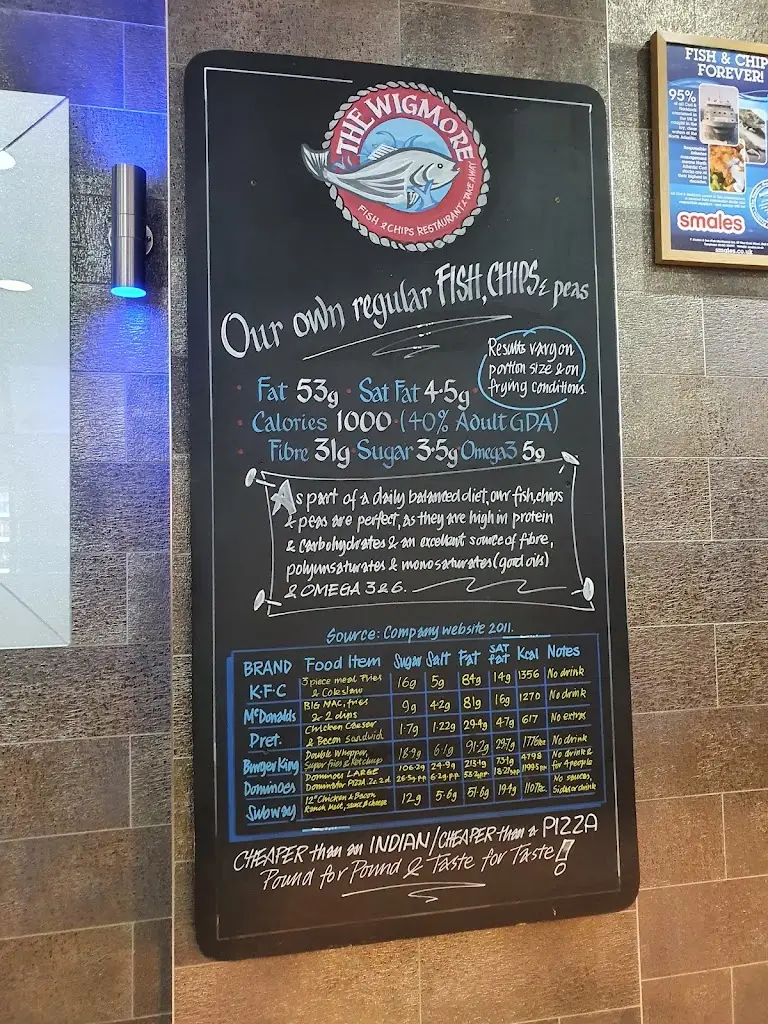 THE WIGMORE
FISH & CHIPS RESTAURANT & TAKE AWAY
Our own regular FISH, CHIPS & peas
Results vary on
portion size & on
frying conditions.
Fat 53g · Sat Fat 4·5g ·
Calories 1000 · (40% Adult GDA)
Fibre 31g · Sugar 3·5g Omega3 5g
As part of a daily balanced diet, our fish, chips
& peas are perfect, as they are high in protein
& carbohydrates & an excellent source of fibre,
polyunsaturates & mono saturates (good oils)
& OMEGA 3 & 6.
Source: Company website 2011.
BRAND Food Item Sugar Salt Fat SAT fat Kcal Notes
K·F·C 3 piece meal Fries & Coleslaw 16g 5g 84g 14g 1356 No drink
McDonalds BIG MAC, fries & 2 dips 9g 4·2g 81g 16g 1270 No drink
Pret. Chicken Caesar & Bacon sandwich 1·7g 1·22g 29·4g 4·7g 617 No extras
Burger King Double Whopper, Super fries & Ketchup 18·9g 6·1g 91·2g 29·7g 1776 No drink
Dominoes Dominos LARGE 106·2g 24·9g 4798 No drink & for 4 people
Subway 12" Chicken & Bacon Ranch Melt, 12g 5·6g 51·6g 19·4g 1107 No sauces, Sides or drink
CHEAPER than an INDIAN / CHEAPER than a PIZZA
Pound for Pound & Taste for Taste!
FISH & CHIPS
FOREVER!
95%
of all Cod &
Haddock
consumed in
the UK is
caught in the
icy, clear
waters of the
North Atlantic.
smales
smales.co.uk